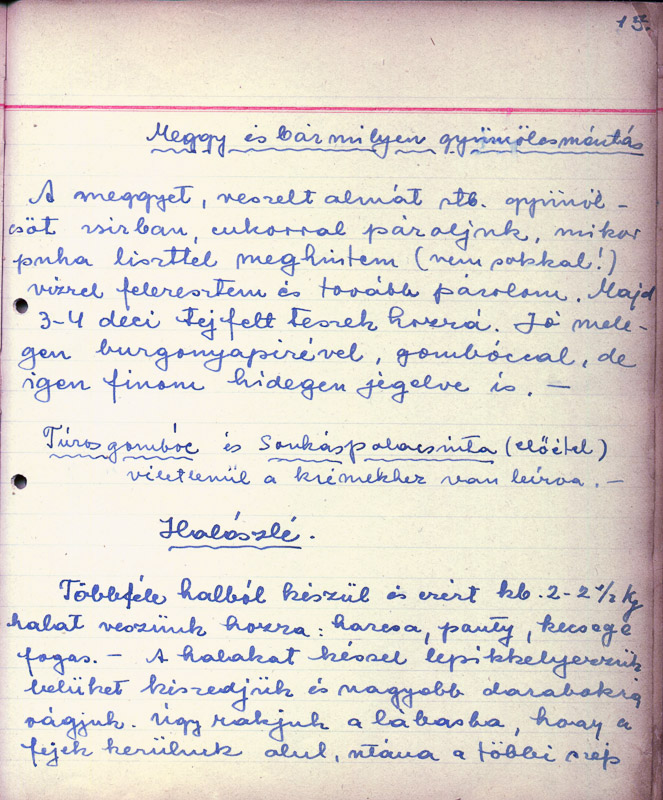 15.
Meggy és bármilyen gyümölcsmártás
A meggyet, reszelt almát stb. gyümöl-
csöt zsirban, cukorral pároljuk, mikor
puha liszttel meghintem (nem sokkal!)
vizzel feleresztem és tovább párolom. Majd
3-4 deci tejfelt teszek hozzá. Jó mele-
gen burgonyapirével, gombóccal, de
igen finom hidegen jégelve is. —
Túrosgombóc és Sonkáspalacsinta (előétel)
véletlenül a krémekhez van leírva. —
Halászlé.
Többféle halból készül és ezért kb. 2-2 1/2 kg
halat veszünk hozzá: harcsa, ponty, kecsege
fogas. — A halakat késsel lepikkelyezzük
belüket kiszedjük és nagyobb darabokra
vágjuk. Úgy rakjuk a lábasba, hogy a
fejek kerülnek alul, utána a többi szép